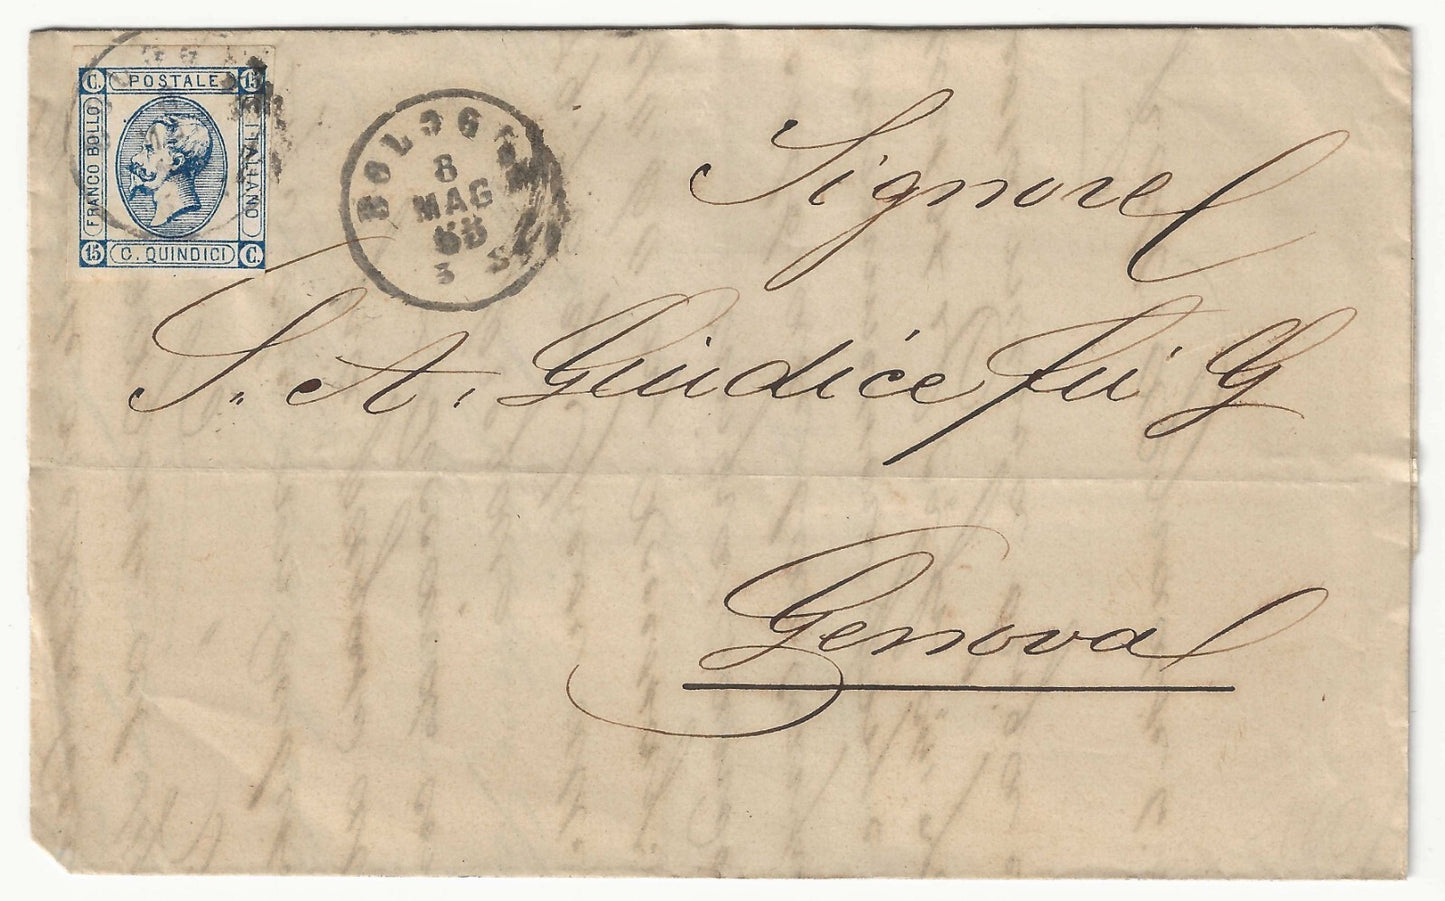 C. POSTALE 15
FRANCO BOLLO
ITALIANO
15 C. QUINDICI C.
BOLOGNA
8
MAG
63
3 S
Signore
S. A. Giudice fu G
Genova